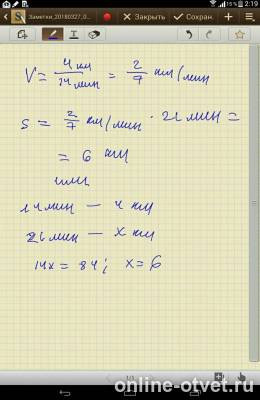 15% 2:19
Заметки_20180327_0... Закрыть Сохран.
V = 4 км / 14 мин = 2/7 км/мин
S = 2/7 км/мин · 21 мин =
= 6 км
или
14 мин – 4 км
21 мин – x км
14x = 84; x = 6
1/1
online-otvet.ru